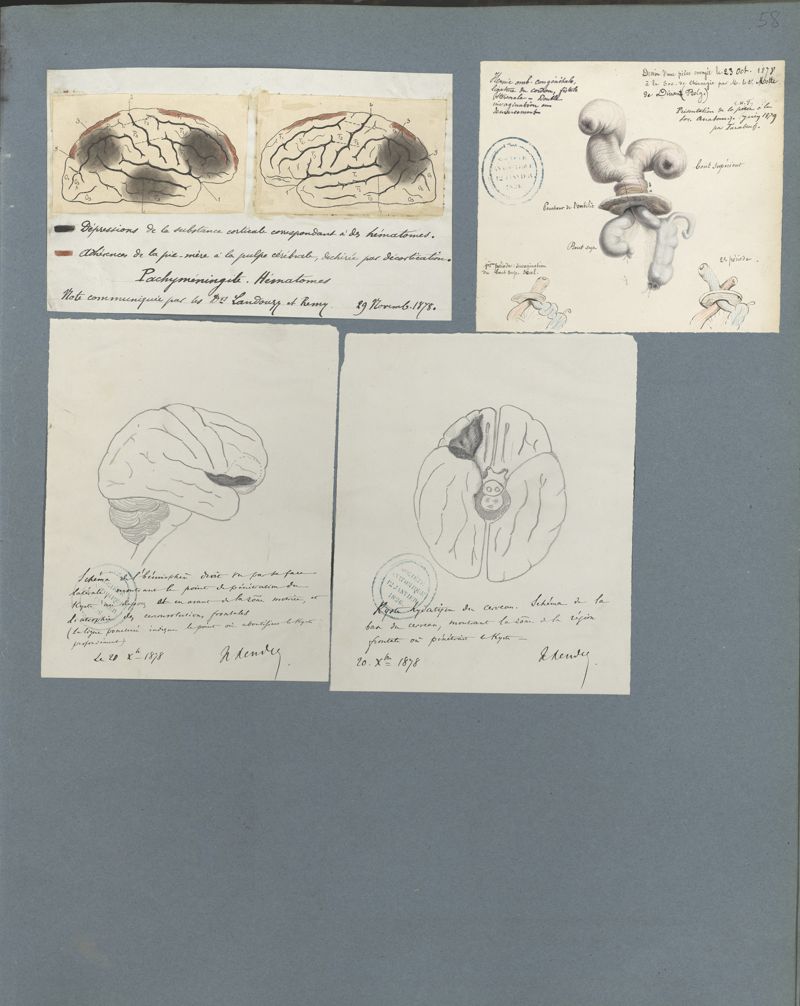 58
Dépressions de la substance corticale correspondant à des hématomes.
Adhérences de la pie-mère à la pulpe cérébrale, déchirée par décortication.
Pachyméningite. Hématomes
Note communiquée par les Drs Landouzy et Remy. 29 Novemb. 1878.
Hernie omb. congénitale,
ligature du cordon, fistule
stercorale – Double
invagination
Dessin d'une pièce envoyée le 23 Oct. 1878
à la Soc. de Chirurgie par M. le Dr. Motte
de Dinant (Belg.)
Présentation de la pièce à la
Soc. Anatomique. 1879
par
SOCIÉTÉ
ANATOMIQUE
12 JANVIER
1826
bout supérieur
Pourtour de l'ombilic
Bout sup.
1ère période: invagination
du bout sup. seul.
2e période.
Schéma de l'hémisphère droit vu par sa face
latérale montrant le point de pénétration du
Kyste au dessous et en avant de la zone motrice, et
l'atrophie des circonvolutions frontales
(la ligne ponctuée indique le point où aboutissait le Kyste
profondément)
Le 20 Xbre 1878
SOCIÉTÉ
ANATOMIQUE
12 JANVIER
1826
Kyste hydatique du cerveau. Schéma de la
base du cerveau, montrant la zone de la région
frontale où pénétrait le Kyste –
20. Xbre 1878